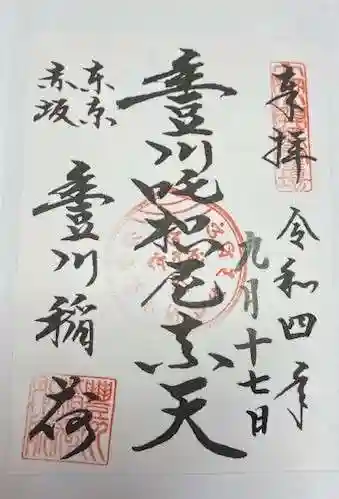 奉拝
令和四年
九月十七日
豊川吒枳尼真天
東京
赤坂
豊川稲荷